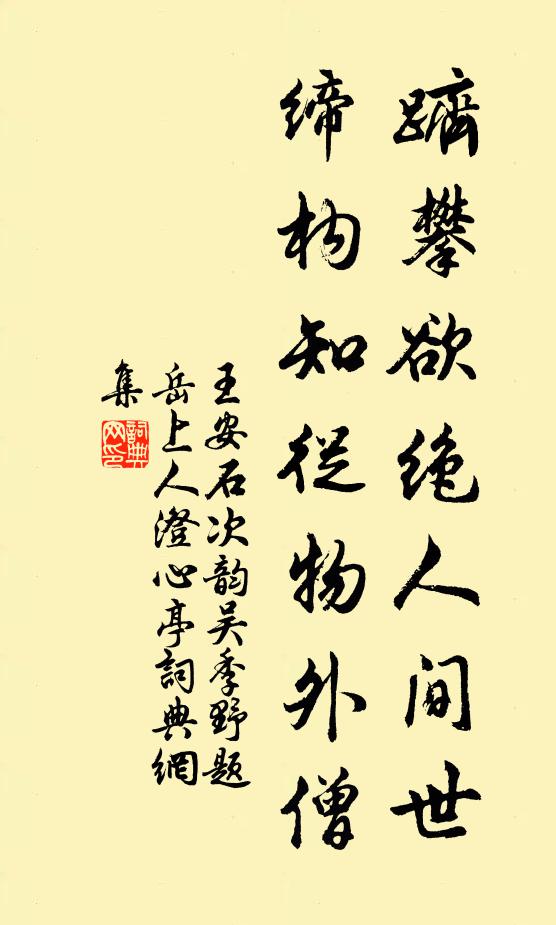 躋攀欲絶人间世
缔构知從物外僧
王安石次韵吴季野题
岳上人澄心亭詞典網
集
詞典
网印